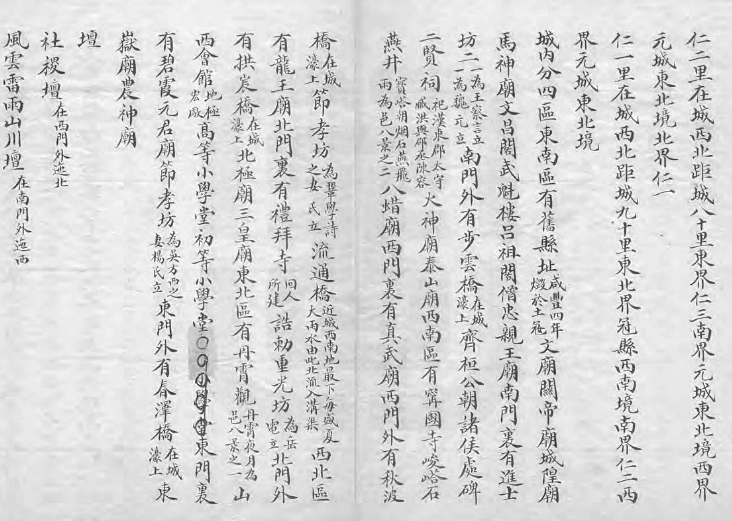 仁二里在城西北距城八十里東界仁三南界元城東北境西界
元城東北境北界仁一
仁一里在城西北距城九十里東北界冠縣西南境南界仁二西
界元城東北境
城內分四區東南區有舊縣址咸豐四年燬於土寇文廟關帝廟城隍廟
馬神廟文昌閣武魁樓呂祖閣僧忠親王廟南門裏有進士
坊二一為王察言立一為魏元立南門外有步雲橋在城濠上齊桓公朝諸侯處碑
二賢祠祀漢東郡太守臧洪與郡丞陳容火神廟泰山廟西南區有寧國寺峻嶝石
燕井寶塔朝烟石燕飛雨為邑八景之二八蜡廟西門裏有真武廟西門外有秋波
橋在城濠上節孝坊為畢學詩之女氏立流通橋近城西南地最下每盛夏大雨水由此北流入溝渠西北區
有龍王廟北門裏有禮拜寺回人所建誥勅重光坊為岳電立北門外
有拱宸橋在城濠上北極廟三皇廟東北區有丹霄觀丹霄夜月為邑八景之一山
西會館地極宏敞高等小學堂初等小學堂東門裏
有碧霞元君廟節孝坊為吳方西之妻楊氏立東門外有春澤橋在城濠上東
嶽廟農神廟
壇
社稷壇在西門外迤北
風雲雷雨山川壇在南門外迤西